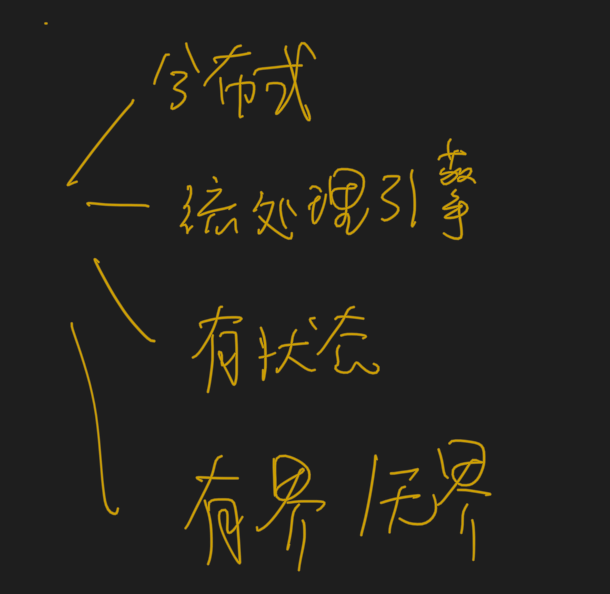 分布式
流处理引擎
有状态
有界/无界